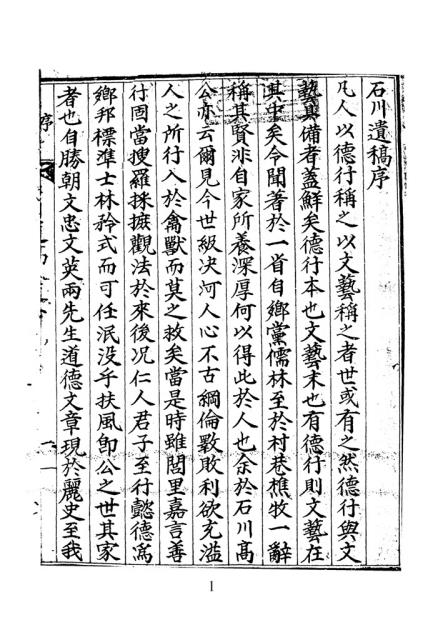 石川遺稿序
凡人以德行稱之以文藝稱之者世或有之然德行與文
藝具備者盖鮮矣德行本也文藝末也有德行則文藝在
其中矣今聞著於一省自鄉黨儒林至於村巷樵牧一辭
稱其賢非自家所養深厚何以得此於人也余於石川髙
公亦云爾見今世級决河人心不古綱倫斁敗利欲充溢
人之所行入於禽獸而莫之救矣當是時雖閭里嘉言善
行固當搜羅採摭觀法於來後况仁人君子至行懿德爲
鄉邦標準士林矜式而可任泯没乎扶風卽公之世其家
者也自勝朝文忠文英兩先生道德文章現於麗史至我
序
1